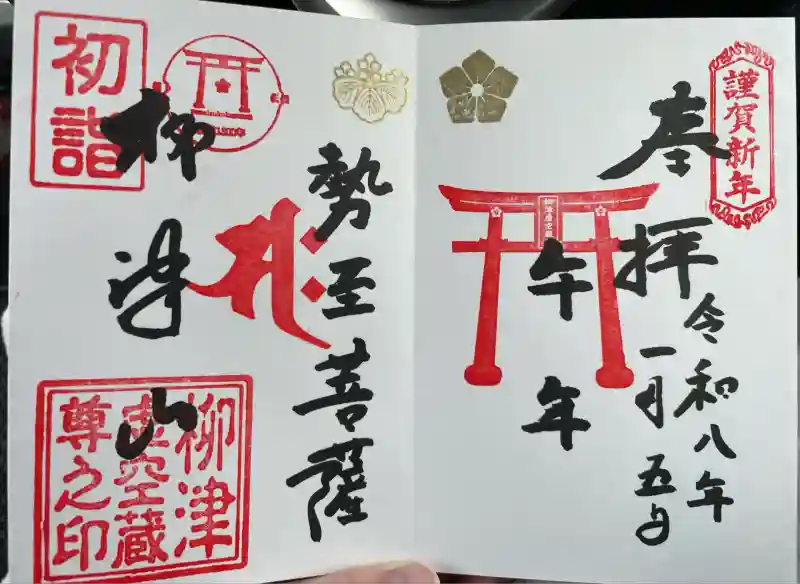 謹賀新年
奉拝
令和八年
一月五日
午年
柳津虚空蔵
勢至菩薩
柳津山
初詣
柳津
虚空蔵
尊之印